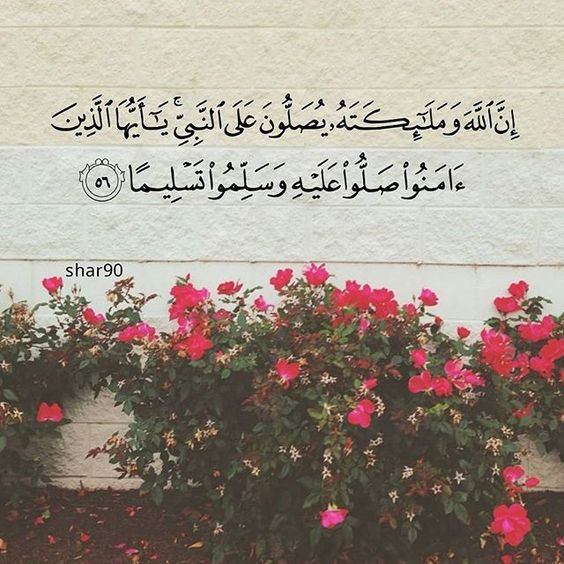 إِنَّ ٱللَّهَ وَمَلَٰٓئِكَتَهُۥ يُصَلُّونَ عَلَى ٱلنَّبِيِّۚ يَٰٓأَيُّهَا ٱلَّذِينَ
ءَامَنُوا۟ صَلُّوا۟ عَلَيْهِ وَسَلِّمُوا۟ تَسْلِيمًا ٥٦
shar90